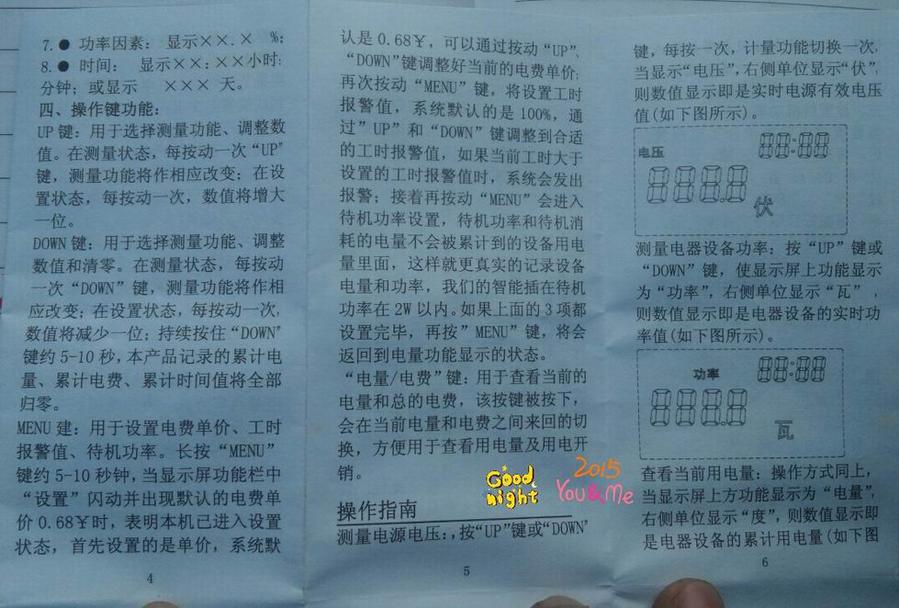 7.● 功率因素： 显示××.× %;
8.● 时间： 显示××:××小时:
分钟；或显示 ××× 天。
四、操作键功能：
UP 键：用于选择测量功能、调整数
值。在测量状态，每按动一次“UP”
键，测量功能将作相应改变；在设
置状态，每按动一次，数值将增大
一位。
DOWN 键：用于选择测量功能、调整
数值和清零。在测量状态，每按动
一次“DOWN”键，测量功能将作相
应改变；在设置状态，每按动一次，
数值将减少一位；持续按住“DOWN”
键约 5-10 秒，本产品记录的累计电
量、累计电费、累计时间值将全部
归零。
MENU 建：用于设置电费单价、工时
报警值、待机功率。长按“MENU”
键约 5-10 秒钟，当显示屏功能栏中
“设置”闪动并出现默认的电费单
价 0.68￥时，表明本机已进入设置
状态，首先设置的是单价，系统默
4
认是 0.68￥，可以通过按动“UP”、
“DOWN”键调整好当前的电费单价；
再次按动“MENU”键，将设置工时
报警值，系统默认的是 100%，通
过”UP”和“DOWN”键调整到合适
的工时报警值，如果当前工时大于
设置的工时报警值时，系统会发出
报警；接着再按动“MENU”会进入
待机功率设置，待机功率和待机消
耗的电量不会被累计到的设备用电
量里面，这样就更真实的记录设备
电量和功率，我们的智能插在待机
功率在 2W 以内。如果上面的 3 项都
设置完毕，再按”MENU”键，将会
返回到电量功能显示的状态。
“电量/电费”键：用于查看当前的
电量和总的电费，该按键被按下，
会在当前电量和电费之间来回的切
换，方便用于查看用电量及用电开
销。
Good
night
2015
You&Me
操作指南
测量电源电压：，按“UP”键或“DOWN”
5
键，每按一次，计量功能切换一次，
当显示“电压”，右侧单位显示“伏”，
则数值显示即是实时电源有效电压
值(如下图所示)。
电压 88:88
888.8 伏
测量电器设备功率：按“UP”键或
“DOWN”键，使显示屏上功能显示
为“功率”，右侧单位显示“瓦”，
则数值显示即是电器设备的实时功
率值(如下图所示)。
功率 88:88
888.8
瓦
查看当前用电量：操作方式同上，
当显示屏上方功能显示为“电量”，
右侧单位显示“度”，则数值显示即
是电器设备的累计用电量(如下图
6